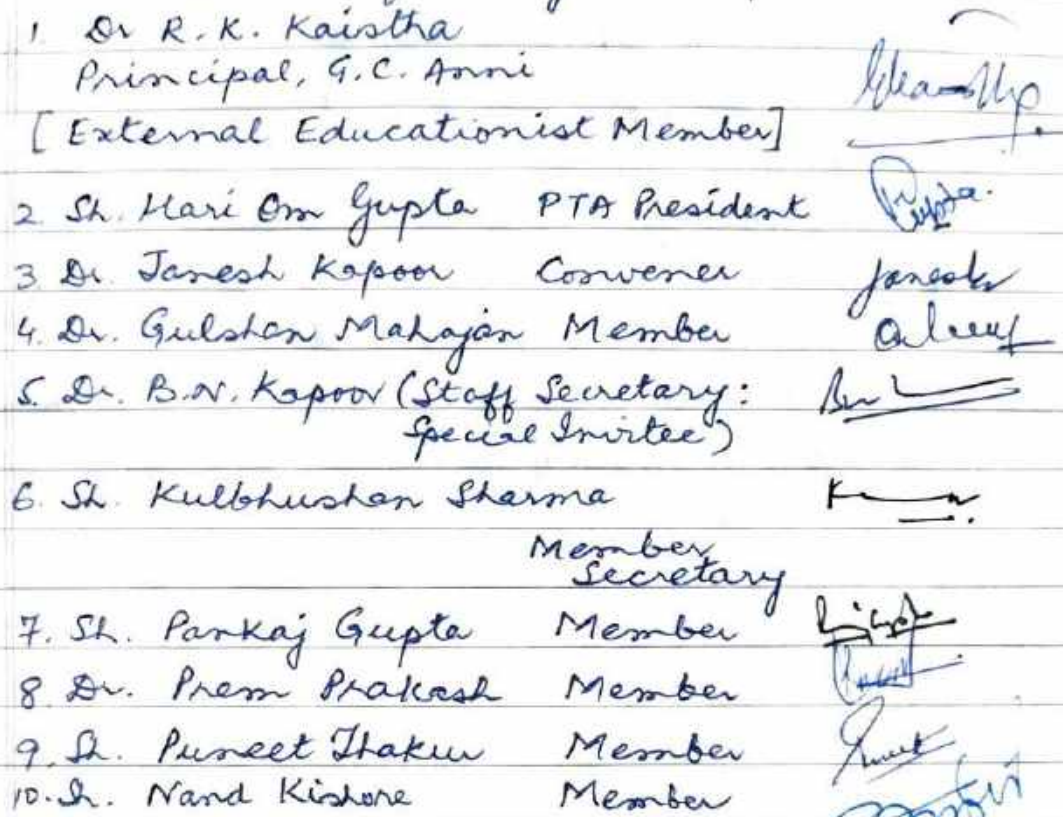 1. Dr R.K. Kaistha
Principal, G.C. Anni
[External Educationist Member]
2. Sh. Hari Om Gupta PTA President Gupta.
3. Dr. Janesh Kapoor Convener Janesh
4. Dr. Gulshan Mahajan Member
5. Dr. B.N. Kapoor (Staff Secretary:
Special Invitee)
6. Sh. Kulbhushan Sharma
Member
Secretary
7. Sh. Pankaj Gupta Member
8. Dr. Prem Prakash Member
9. Sh. Puneet Thakur Member
10. Sh. Nand Kishore Member